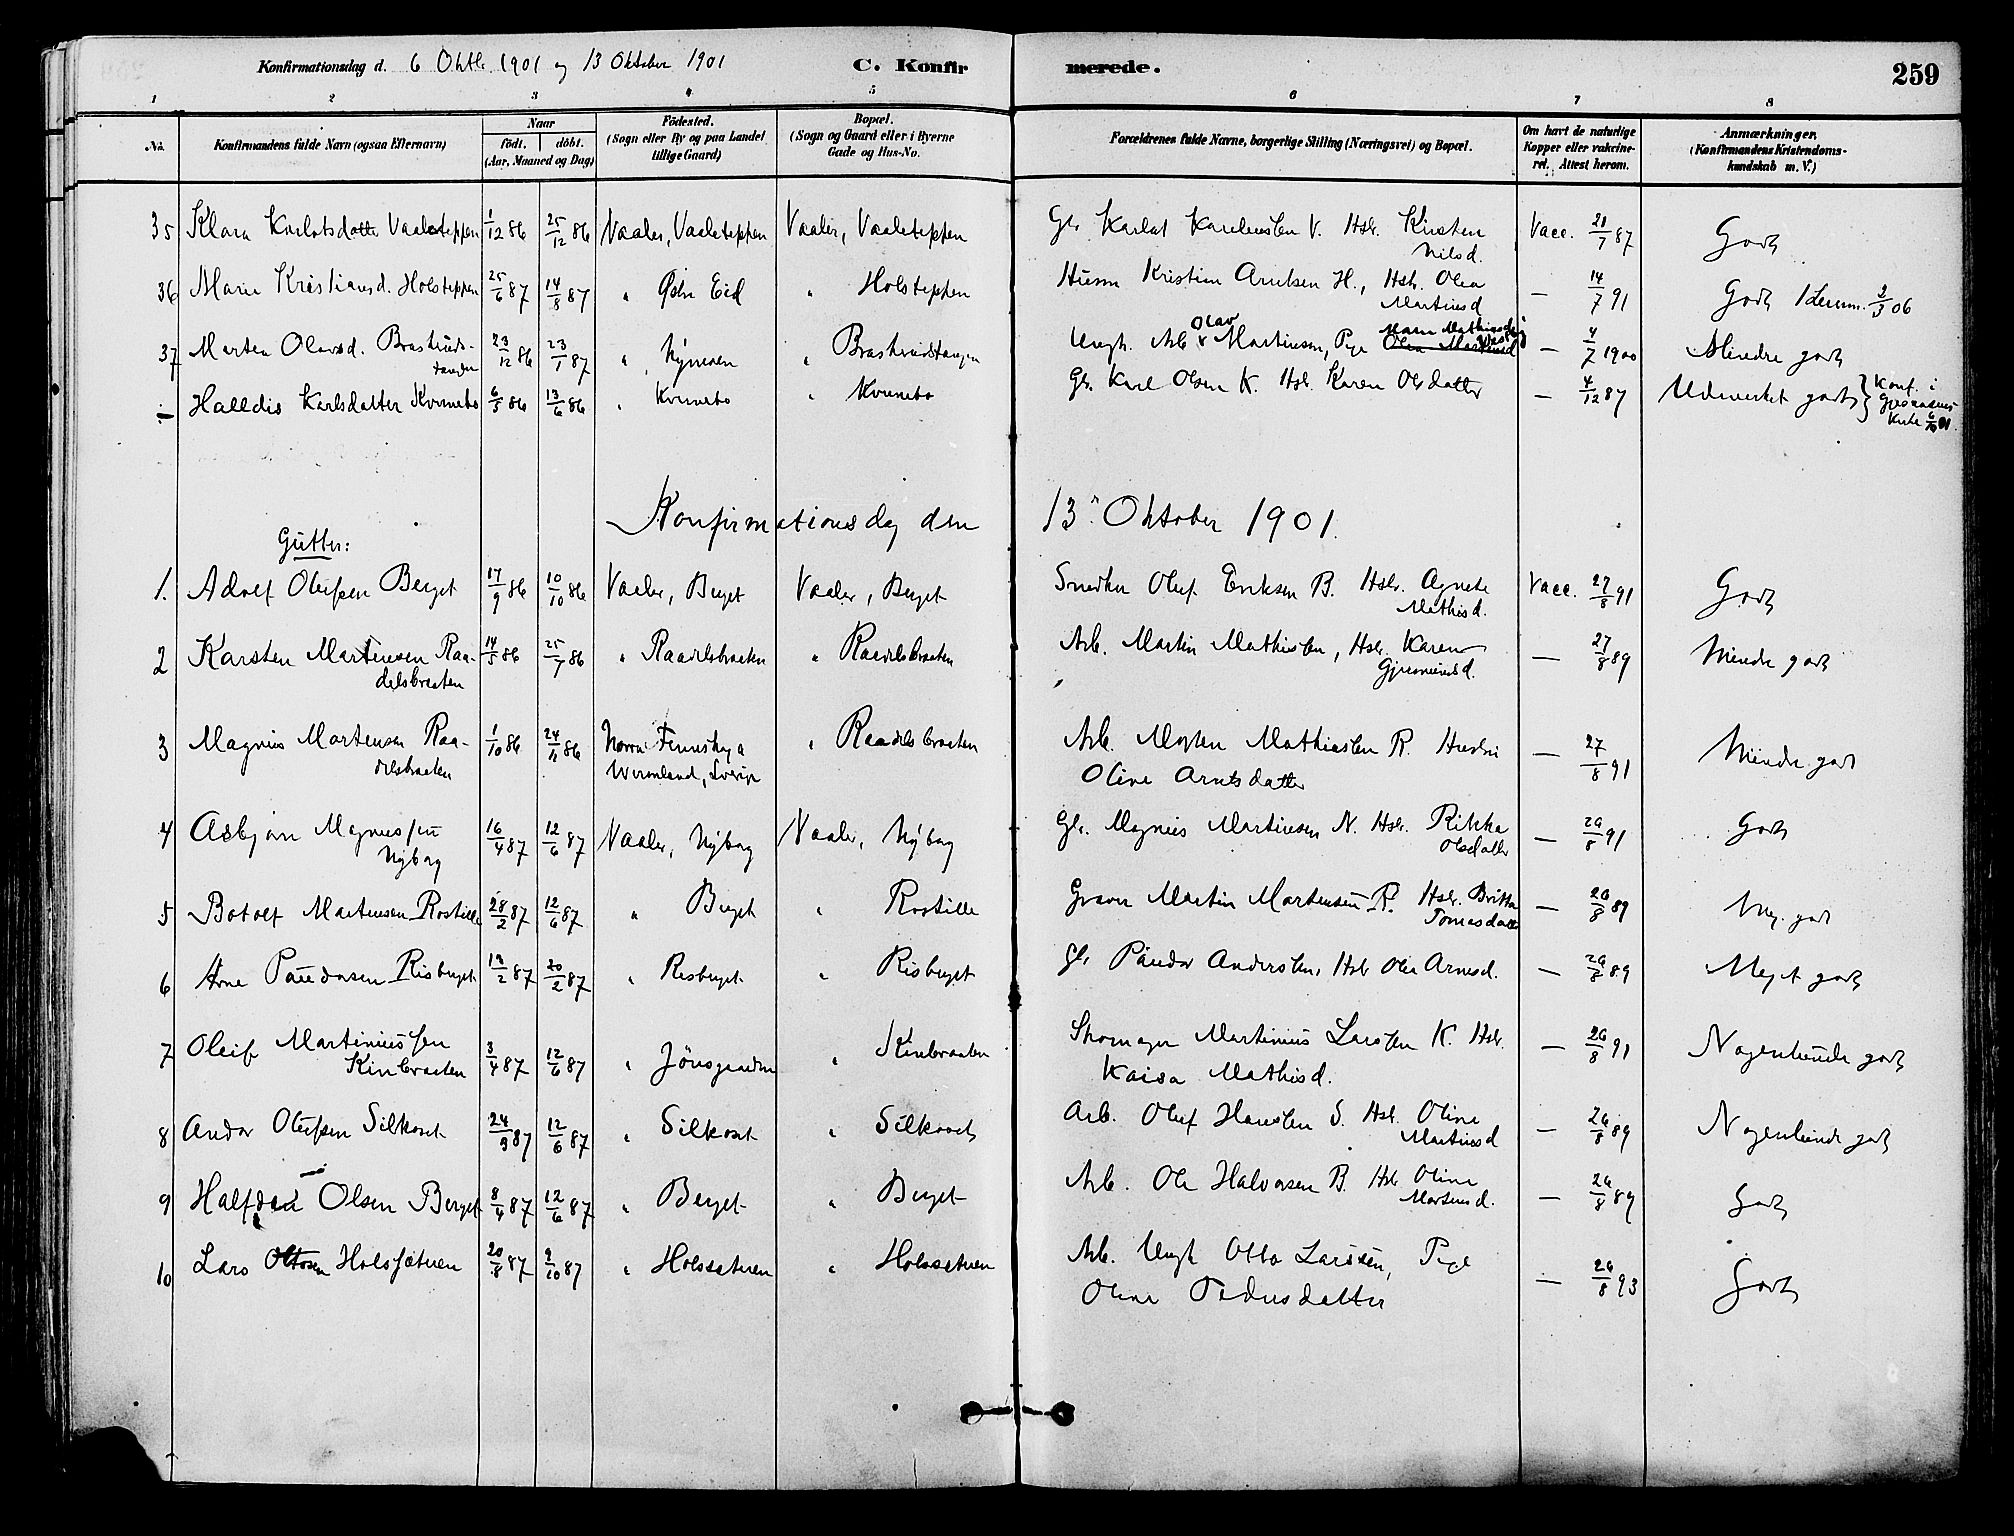 Konfirmationsdag d. 6 Oktb. 1901 og 13 Oktober 1901 C. Konfirmerede. 259
1 2 3 4 5 6 7 8
No. Konfirmandens fulde Navn (ogsaa Efternavn) Naar födt. döbt. (Aar, Maaned og Dag) Födested. (Sogn eller By og paa Landet tillige Gaard) Bopæl. (Sogn og Gaard eller i Byerne Gade og Hus-No. Forældrenes fulde Navne, borgerlige Stilling (Næringsvei) og Bopæl. Om havt de naturlige Kopper eller vakcineret. Attest herom. Anmærkninger. (Konfirmandens Kristendomskundskab m. V.)
35 Klara Karlotsdatter Vaaleteppen 1/12 86 25/12 86 Vaaler, Vaaleteppen Vaaler, Vaaleteppen Gbr. Karlot V. Hstr. Kirsten Nilsd. Vacc. 21/7 87 Godt
36 Marie Kristiansd. Holsteppen 25/6 87 14/8 87 " Eid " Holsteppen Husm Kristian Arntsen H., Hstr. Olea Martinsd — 14/7 91 Godt 2/3 06
37 Marten Olavsd. Brastrudtangen 23/12 86 23/1 87 " Nymoen " Brastrudtangen Ungk. Arb Olav Martinsen, Pige Maren Mathiasd Olea Martinsd — 4/7 1900 Mindre godt
— Halldis Karlsdatter Kvernebo 6/5 86 13/6 86 " Kvernebo " Kvernebo Gbr. Karl Olsen K. Hstr. Karen Olsdatter — 4/12 87 Udmerket godt Konf. i Gjesaasens Kirke 6/10 01.
Konfirmationsdag den 13. Oktober 1901.
Gutter:
1. Adolf Olufsen Berget 17/9 86 10/10 86 Vaaler, Berget Vaaler, Berget Snedker Oluf Eriksen B. Hstr. Agnete Mathisd. Vacc. 27/8 91 Godt
2 Karsten Martinsen Raadelsbraaten 14/5 86 25/7 86 " Raadelsbraaten " Raadelsbraaten Arb. Martin Mathissen, Hstr. Karen — 27/8 89 Mindre godt
3 Magnus Martensen Raadelsbraaten 1/10 86 24/11 86 Norra Finnskoga Wermland, Sverige " Raadelsbraaten Arb. Morten Mathiassen R. Hustru Oline Arntsdatter — 27/8 91 Mindre godt
4 Asbjørn Magnussen Nyborg 16/4 87 12/6 87 Vaaler, Nyborg Vaaler, Nyborg Gbr. Magnus Martinsen N. Hstr. Rikka Olsdatter — 26/8 91 Godt
5 Botolf Martensen Rostille 28/2 87 12/6 87 " Berget " Rostille Martin Martensen R. Hstr. Britta Tomasdatter — 26/8 89 Meg. godt
6 Arne Paudersen Risberget 12/2 87 20/2 87 " Risberget " Risberget Gbr Pauder Anderssen, Hstr Olea Arnesd. — 26/8 89 Meget godt
7 Oleif Martiniussen Kinbraaten 3/4 87 12/6 87 " Jönsgaarden " Kinbraaten Skomager Martinius Larssen K. Hstr. Kaisa Mathisd. — 26/8 91 Nogenlunde godt
8 Andor Olufsen Silkoset 24/3 87 12/6 87 " Silkoset " Silkoset Arb. Oluf Hanssen S. Hstr. Oline Martinsd — 26/8 89 Nogenlunde godt
9 Halfdan Olsen Berget 8/4 87 12/6 87 " Berget " Berget Arb. Ole Halvorsen B. Hstr Oline Martensd. — 26/8 89 Godt
10 Lars Ottosen Holssætren 20/8 87 9/10 87 " Holssætren " Holssætren Arb. Ungk Otto Larssen, Pige Oline Pedersdatter — 26/8 93 Godt